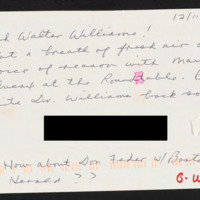 12/11
d Walter Williams!
t a breath of fresh air a
oice of reason with Mar
at the Roundtable. B
ite Dr. Williams back so
How about Don Feder w/ Bosto
Herald??
B. W